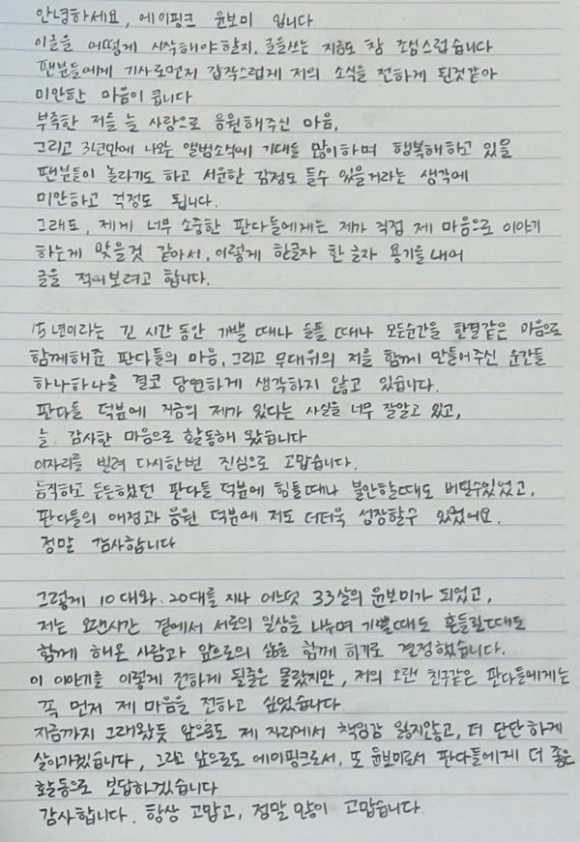 안녕하세요, 에이핑크 윤보미 입니다
이글을 어떻게 시작해야할지, 글을쓰는 지금도 참 조심스럽습니다
팬분들에게 기사로먼저 갑작스럽게 저의 소식을 전하게 된것같아
미안한 마음이 큽니다
부족한 저를 늘 사랑으로 응원해주신 마음,
그리고 3년만에 나오는 앨범소식에 기대를 많이하며 행복해하고 있을
팬분들이 놀라기도 하고 서운한 감정도 들수 있을거라는 생각에
미안하고 걱정도 됩니다.
그래도, 제게 너무 소중한 판다들에게는 제가 직접 제 마음으로 이야기
하는게 맞을것 같아서, 이렇게 한글자 한 글자 용기를 내어
글을 적어보려고 합니다.
15년이라는 긴 시간 동안 기쁠 때나 슬플 때나 모든순간을 한결같은 마음으로
함께해준 판다들의 마음, 그리고 무대위의 저를 함께 만들어주신 순간들
하나하나를 결코 당연하게 생각하지 않고 있습니다.
판다들 덕분에 지금의 제가 있다는 사실을 너무 잘알고 있고,
늘 감사한 마음으로 활동해 왔습니다
이자리를 빌려 다시한번 진심으로 고맙습니다.
듬직하고 든든했던 판다들 덕분에 힘들때나 불안할때도 버틸수있었고,
판다들의 애정과 응원 덕분에 저도 더더욱 성장할수 있었어요.
정말 감사합니다
그렇게 10대와. 20대를 지나 어느덧 33살의 윤보미가 되었고,
저는 오랜시간 곁에서 서로의 일상을 나누며 기쁠때도 흔들릴때도
함께 해온 사람과 앞으로의 삶을 함께 하기로 결정했습니다.
이 이야기를 이렇게 전하게 될줄은 몰랐지만, 저의 오랜 친구같은 판다들에게는
꼭 먼저 제 마음을 전하고 싶었습니다
지금까지 그래왔듯 앞으로도 제 자리에서 책임감 잃지않고, 더 단단하게
살아가겠습니다, 그리고 앞으로도 에이핑크로서, 또 윤보미로서 판다들에게 더 좋은
활동으로 보답하겠습니다
감사합니다. 항상 고맙고, 정말 많이 고맙습니다.